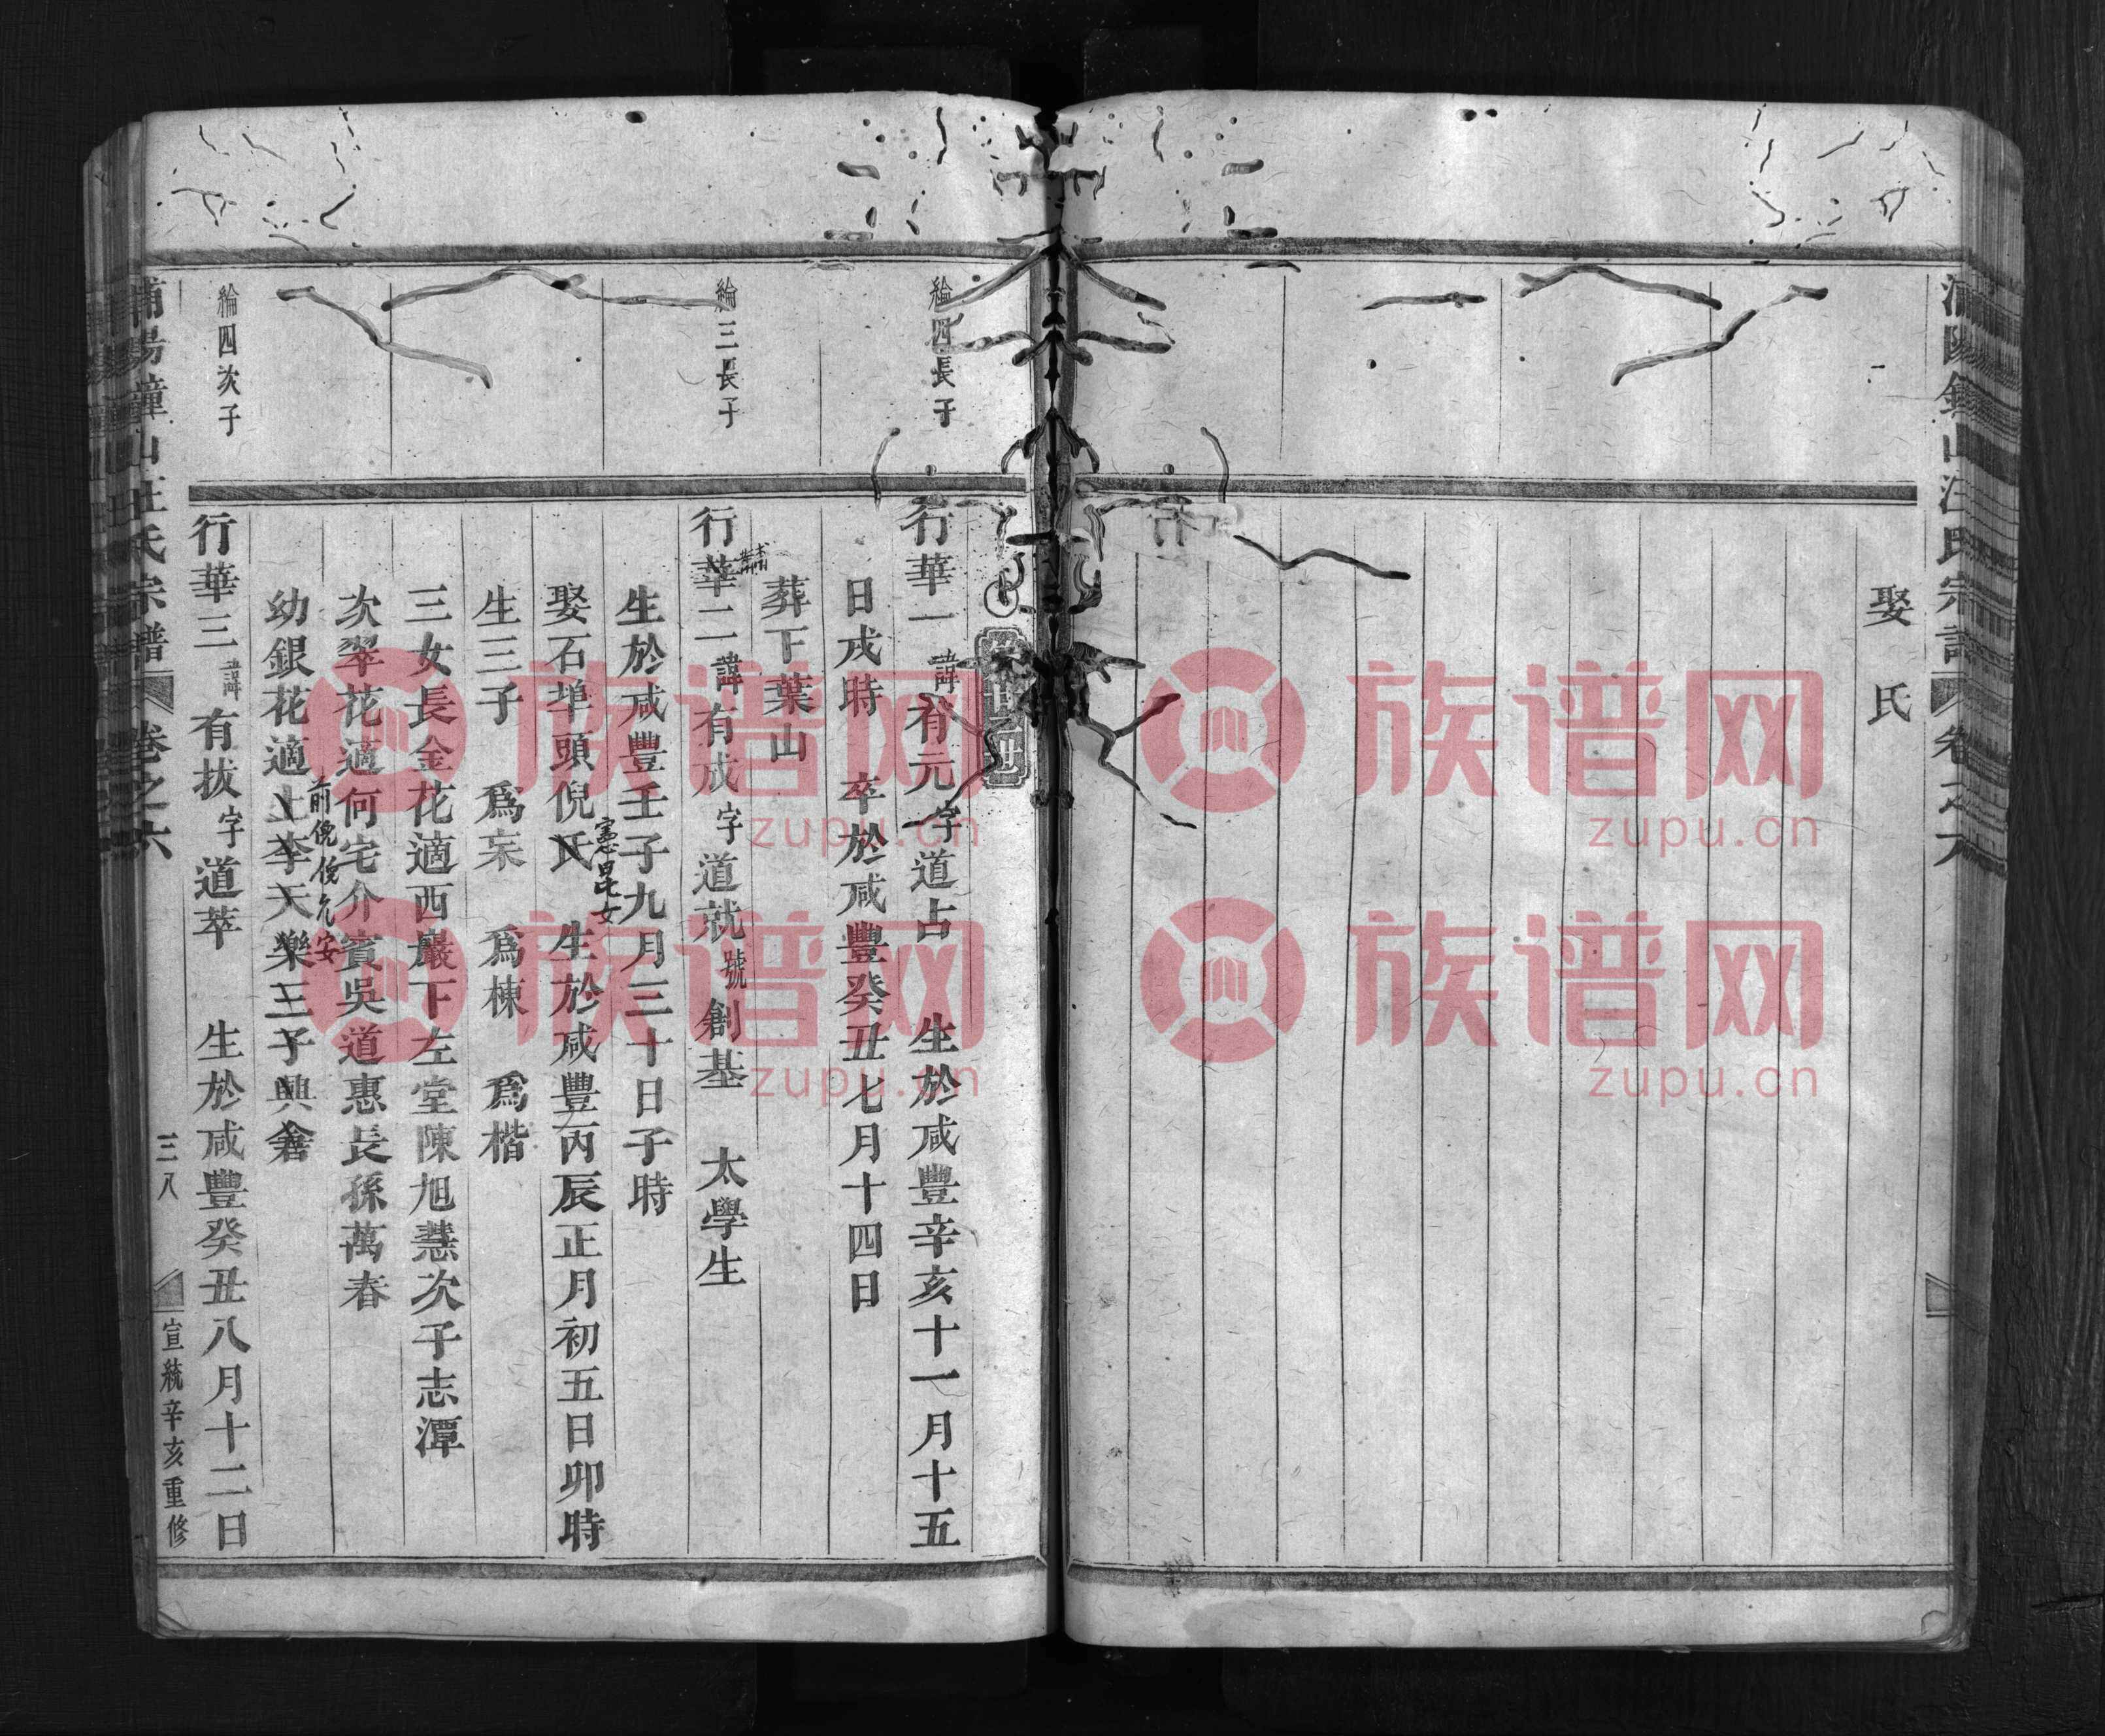 娶氏
綸四長子
行華一諱有元字道占　生於咸豐辛亥十一月十五
日戌時　卒於咸豐癸丑七月十四日
葬下葉山
綸三長子
行華二諱有成字道就號創基　太學生
生於咸豐壬子九月三十日子時
娶石埠頭倪氏　生於咸豐丙辰正月初五日卯時
憲昆女
生三子　爲宋　爲棟　爲楷
三女長金花適西巖下左堂陳旭慧次子志潭
次翠花適何宅介賓吳道惠長孫萬春
幼銀花適上李天樂三子興
前倪俊允安
綸四次子
行華三諱有拔字道萃　生於咸豐癸丑八月十二日
浦陽鐘山汪氏宗譜　卷之六　三八　宣統辛亥重修
族谱网
zupu.cn
族谱网
zupu.cn
族谱网
zupu.cn
族谱网
zupu.cn